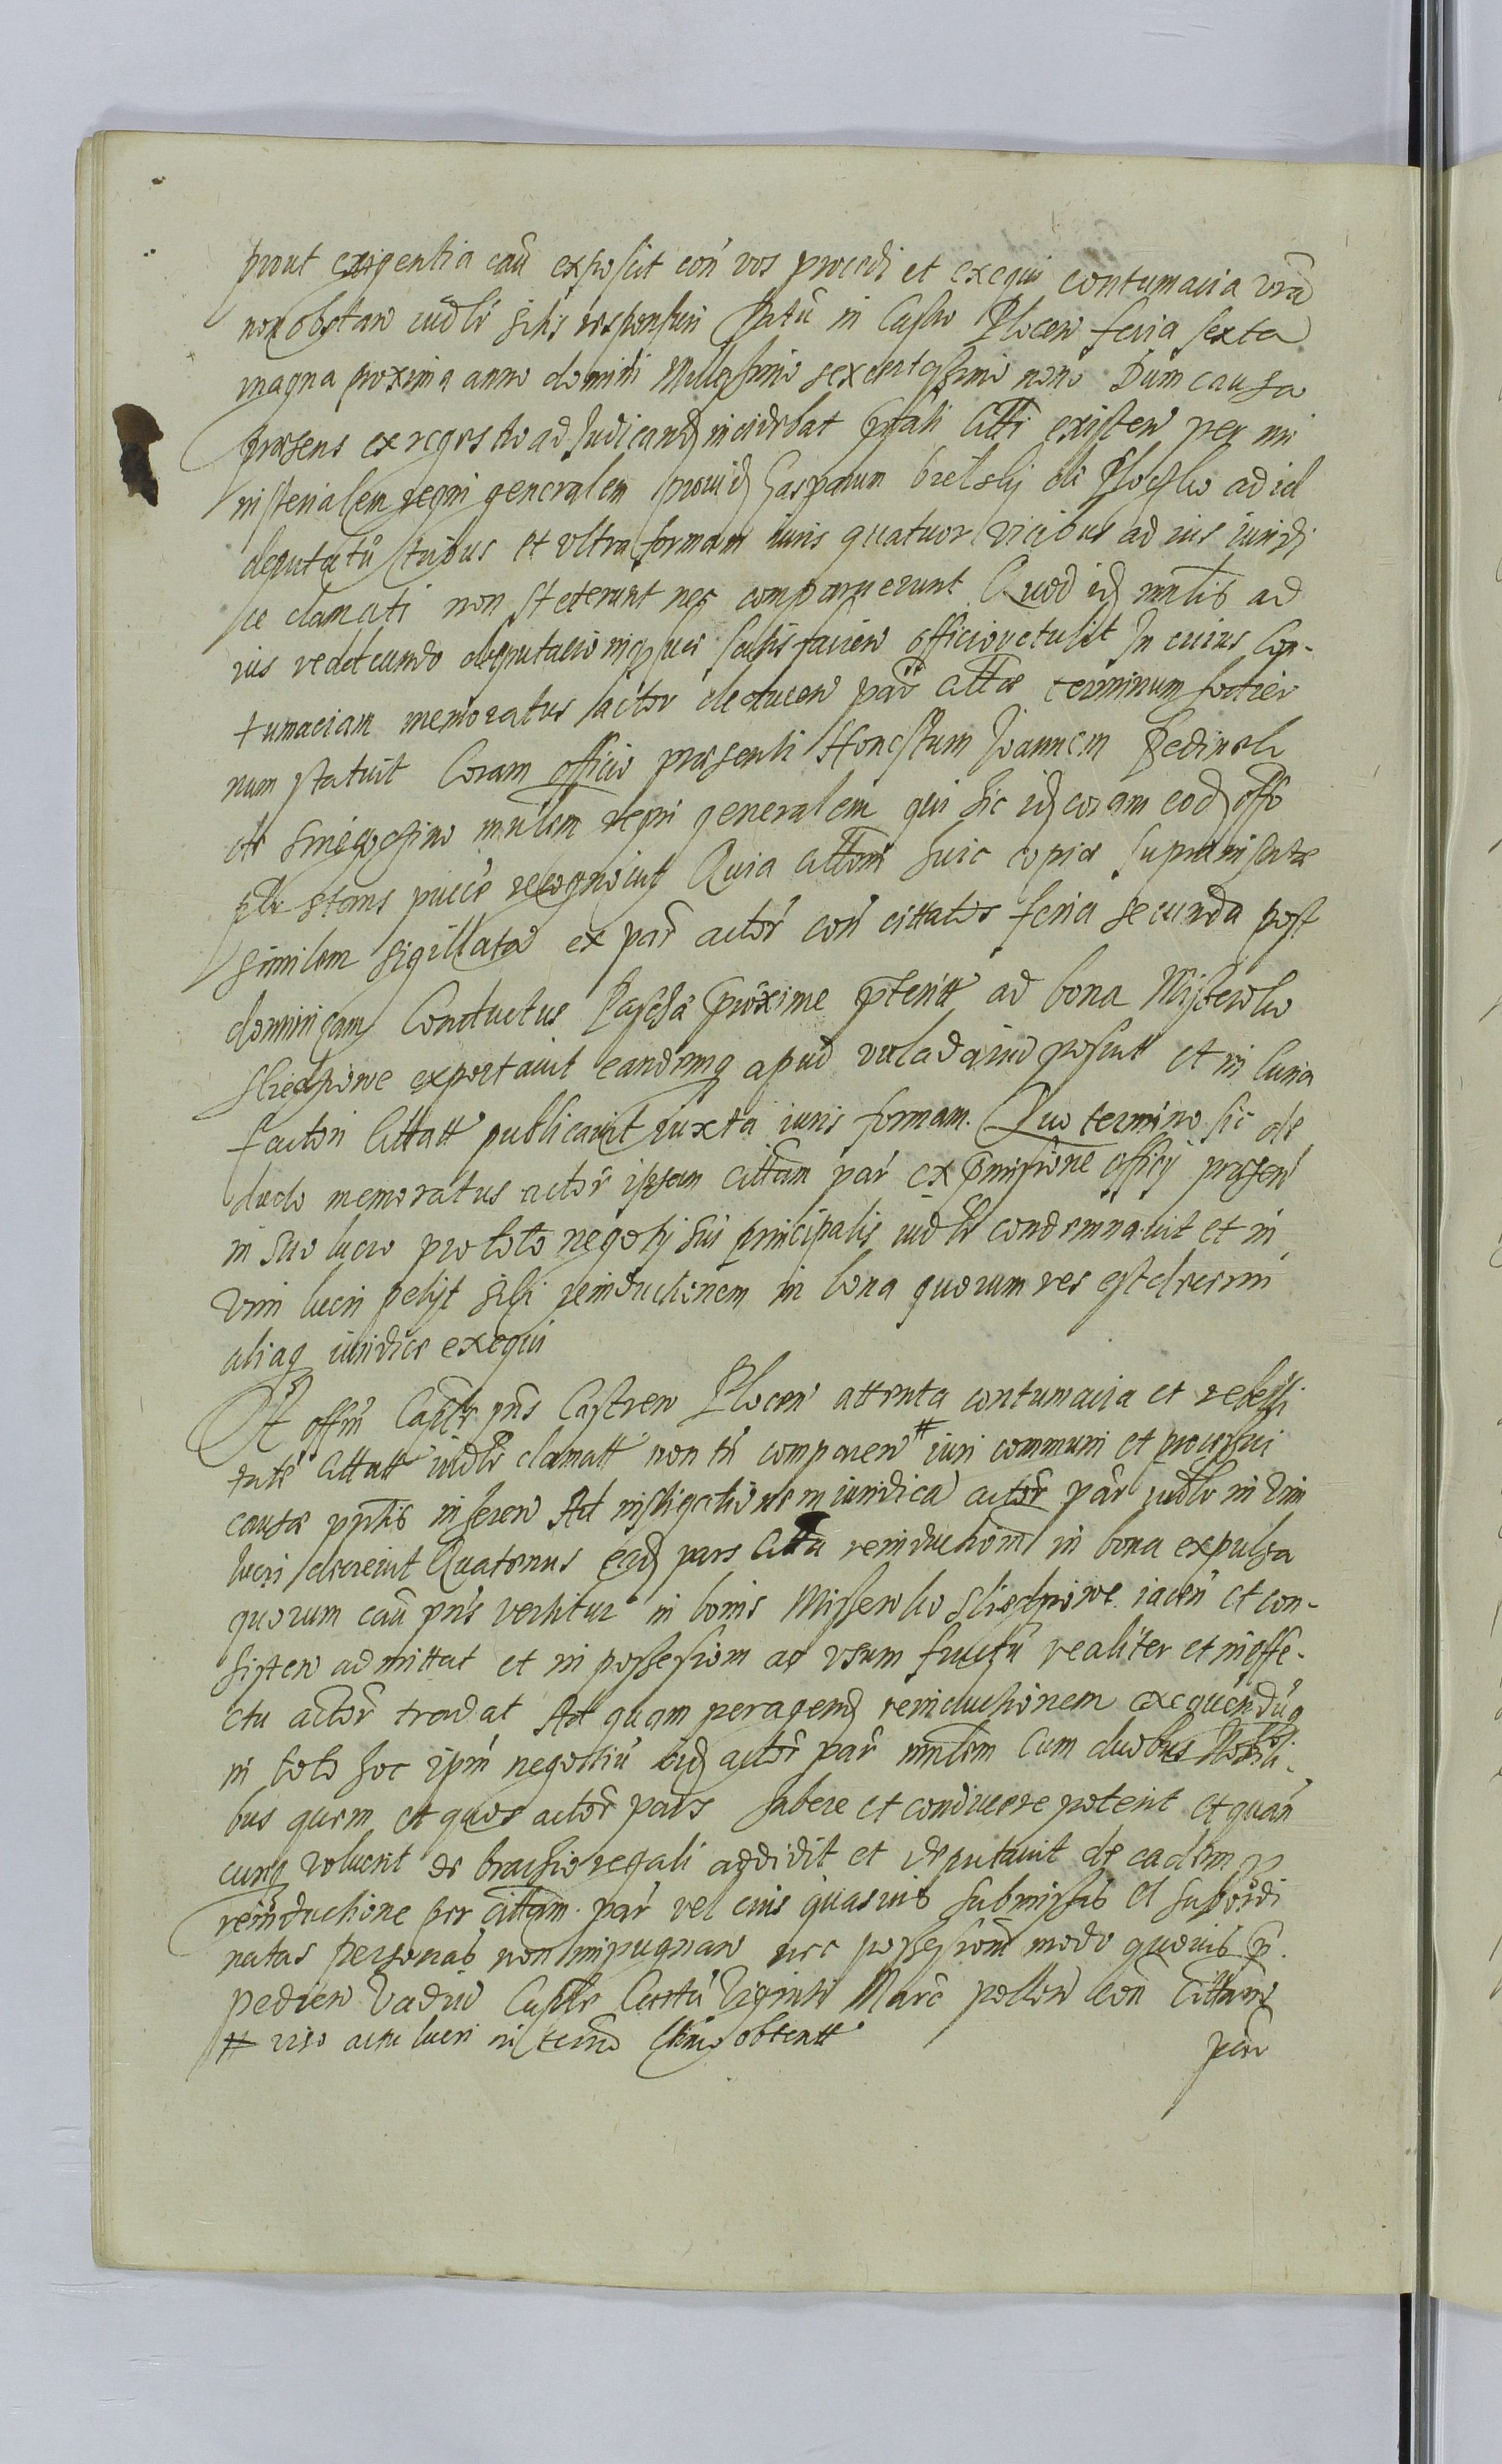 prout exigentia cau exposcit con vos procedi et exequi contumacia vra
non obstan iudlr sitis responsuri Datu in Castro Plocen feria sexta
magna proxima anno domini Millesimo sexcentesimo nono Dum causa
praesens ex regestro ad Judicand incidebat citti existen per mi
nisterialem regni generalem provid Gasparum de Plocsko ad id
deputatu tribus et vltra formam iuris quatuor vicibus ad ius iuridi
ce clamati non steterunt nec comparuerunt Quod id mnlis ad
ius reddeundo deputacioniq suae satisfacien officio retulit In cuius Con-
tumaciam memoratus actor deducen par cittae terminum hodier
num statuit Coram officio praesenti Honestum Joannem
de mnlem regni generalem qui hic id coram eod offo
stans recognovit Quia cittom huic copiae suprainsertae
similem sigillata ex par actor con cittatos feria secunda post
dominicam Conductus Paschae proxime pterit ad bona Misserwko
exportavit eandemq apud posuit et in Curia
factori Cittatt publicavit iuxta iuris formam. Quo termino sic de
ducto memoratus actor ipsam cittam par ex pmissione officij praesen
in suo lucro pro toto negotij sui principalis iudlr condemnavit et in
vim lucri petijt sibi reinductionem in bona quorum res est decerni
aliaq iuridice exequi
Et offm Captle pns Castren Plocen attenta contumacia et rebelli
tate Cittatt iudlr clamatt non tn comparen # iuri communi et processui
causae pntis inheren Ad instigationem iuridica actor par iudlr in vim
lucri decrevit Quatenus ead pars citta reinductionem in bona expulsa
quorum cau pns vertitur in bonis Misserwko iacen et con-
sisten admittat et in possessionem ac vsum fructu realiter et in effe-
ctu actor tradat Ad quam peragend reinductionem exequenduq
in toto hoc ipm negottiu eid actor par mnlem Cum duobus Nobili-
bus quem et quos actor pars habere et conducere poterit et quan
cunq voluerit de brachio regali addidit et deputavit de eadem
reinductione per cittam par vel eius quasuis submissas et subordi
natas personas non impugnan nec possessiom modo quouis
pedien Vadio Captle Centu Viginti Marc pollon con Cittam
# viso actu lucri in termo obtentt
par